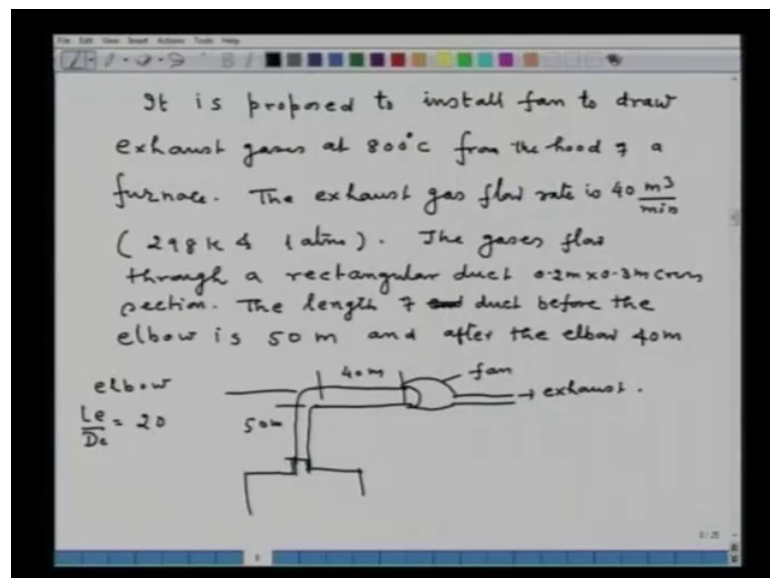 File Edit View Insert Actions Tools Help
It is proposed to install fan to draw
exhaust gases at 800°C from the hood of a
furnace. The exhaust gas flow rate is 40 m3/min
(298 K & 1 atm). The gases flow
through a rectangular duct 0.2m x 0.3m cross
section. The length of duct before the
elbow is 50 m and after the elbow 40m
elbow
Le/De = 20
40m
fan
→ exhaust.
50m